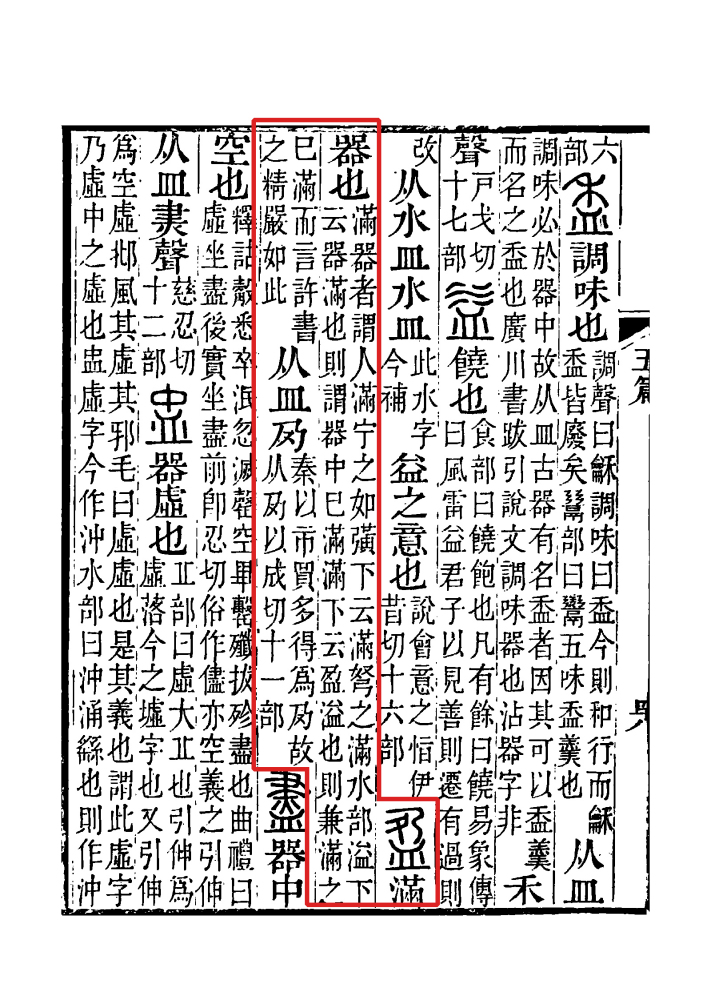 五篇
六部盉調味也調聲曰龢調味曰盉今則和行而龢盉皆廢矣鬻部曰鬻五味盉羹也从皿
調味必於器中故从皿古器有名盉者因其可以盉羹而名之盉也廣川書跋引說文調味器也沾器字非禾
聲戸戈切十七部益饒也食部曰饒飽也凡有餘曰饒易象傳曰風雷益君子以見善則遷有過則
改从水皿水皿此水字今補益之意也說會意之恉伊昔切十六部盈滿
器也滿器者謂人滿宁之如彉下云滿弩之滿水部溢下云器滿也則謂器中巳滿滿下云盈溢也則兼滿之
巳滿而言許書之精嚴如此从皿夃秦以市買多得爲夃故从夃以成切十一部盡器中
空也釋詁㲉悉卒泯忽滅罄空畢罊殲拔殄盡也曲禮曰虛坐盡後實坐盡前卽忍切俗作儘亦空義之引伸
从皿㶳聲慈忍切十二部盅器虛也丠部曰虛大丠也引伸爲虛落今之墟字也又引伸
爲空虛邶風其虛其邪毛曰虛虛也是其義也謂此虛字乃虛中之虛也盅虛字今作沖水部曰沖涌繇也則作沖